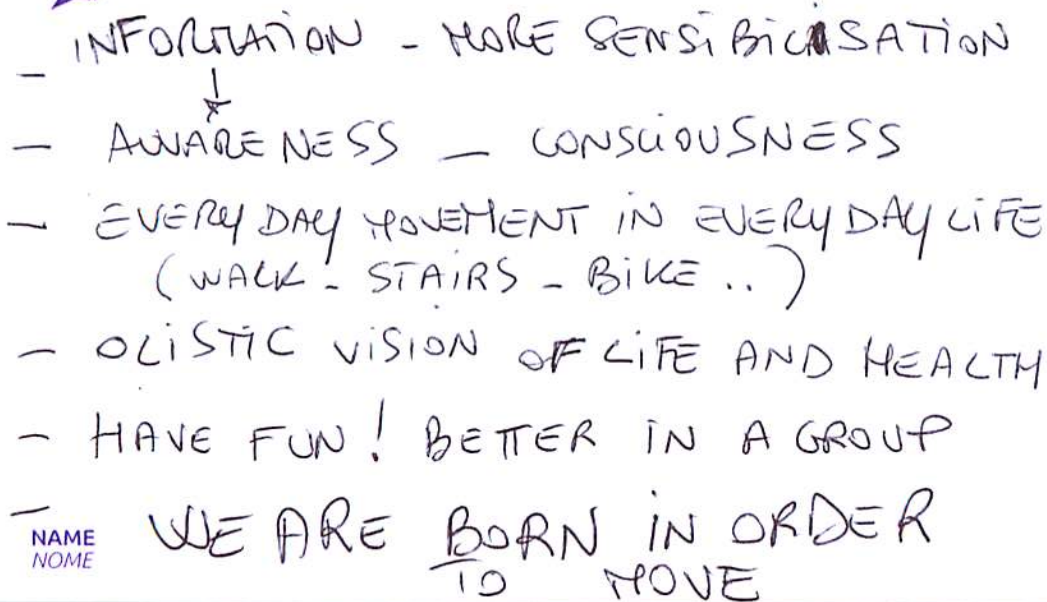 - INFORMATION - MORE SENSIBILISATION
- AWARENESS - CONSCIOUSNESS
- EVERYDAY MOVEMENT IN EVERYDAY LIFE
(WALK - STAIRS - BIKE ..)
- OLISTIC VISION OF LIFE AND HEALTH
- HAVE FUN! BETTER IN A GROUP
- WE ARE BORN IN ORDER
TO MOVE
NAME
NOME